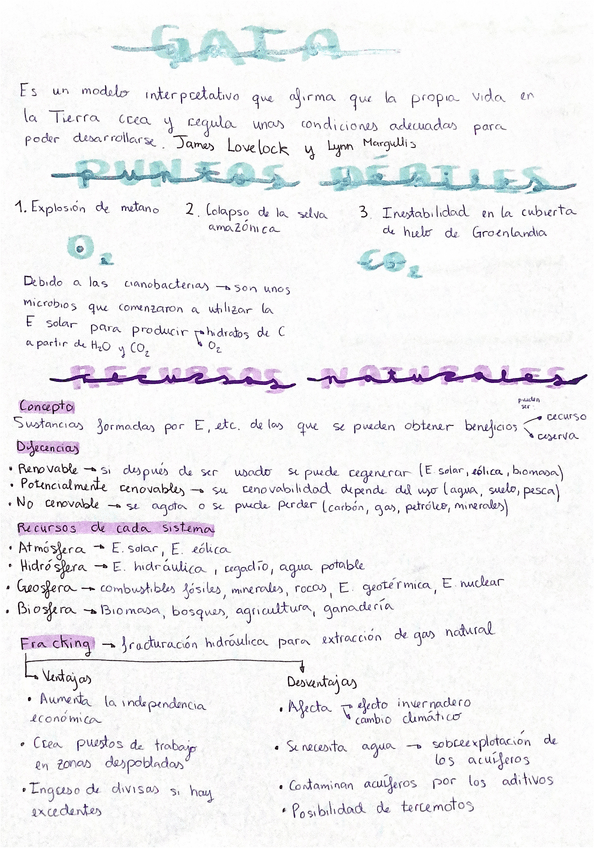 GAIA
Es un modelo interpretativo que afirma que la propia vida en
la Tierra crea y regula unas condiciones adecuadas para
poder desarrollarse. James Lovelock y Lynn Margullis
PUNTOS DÉBILES
1. Explosión de metano
2. Colapso de la selva
amazónica
3. Inestabilidad en la cubierta
de hielo de Groenlandia
O2
CO2
Debido a las cianobacterias → son unos
microbios que comenzaron a utilizar la
E solar para producir → hidratos de C
a partir de H2O y CO2 → O2
RECURSOS NATURALES
Concepto
pueden
ser
Sustancias formadas por E, etc. de las que se pueden obtener beneficios → recurso
→ reserva
Diferencias
• Renovable → si después de ser usado se puede regenerar (E solar, eólica, biomasa)
• Potencialmente renovables → su renovabilidad depende del uso (agua, suelo, pesca)
• No renovable → se agota o se puede perder (carbón, gas, petróleo, minerales)
Recursos de cada sistema
• Atmósfera → E. solar, E. eólica
• Hidrósfera → E. hidráulica, regadío, agua potable
• Geosfera → combustibles fósiles, minerales, rocas, E. geotérmica, E. nuclear
• Biosfera → Biomasa, bosques, agricultura, ganadería
Fracking → fracturación hidráulica para extracción de gas natural
Ventajas
• Aumenta la independencia
económica
• Crea puestos de trabajo
en zonas despobladas
• Ingreso de divisas si hay
excedentes
Desventajas
• Afecta → efecto invernadero
→ cambio climático
• Se necesita agua → sobreexplotación de
los acuíferos
• Contaminan acuíferos por los aditivos
• Posibilidad de terremotos